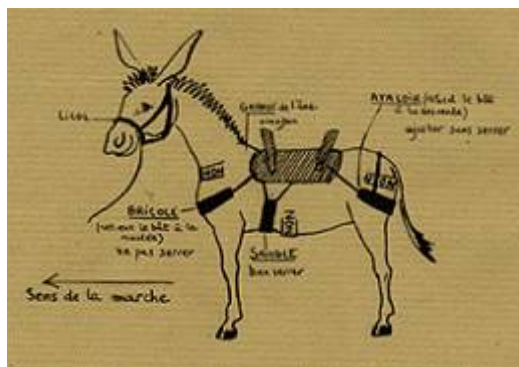 Licol
GARROT de l'âne
AVALOIR (retient le bât
à la descente)
ajuster sans serrer
NON
NON
BRICOLE
(retient le bât à la
montée)
ne pas serrer
NON
SANGLE
bien serrer
Sens de la marche